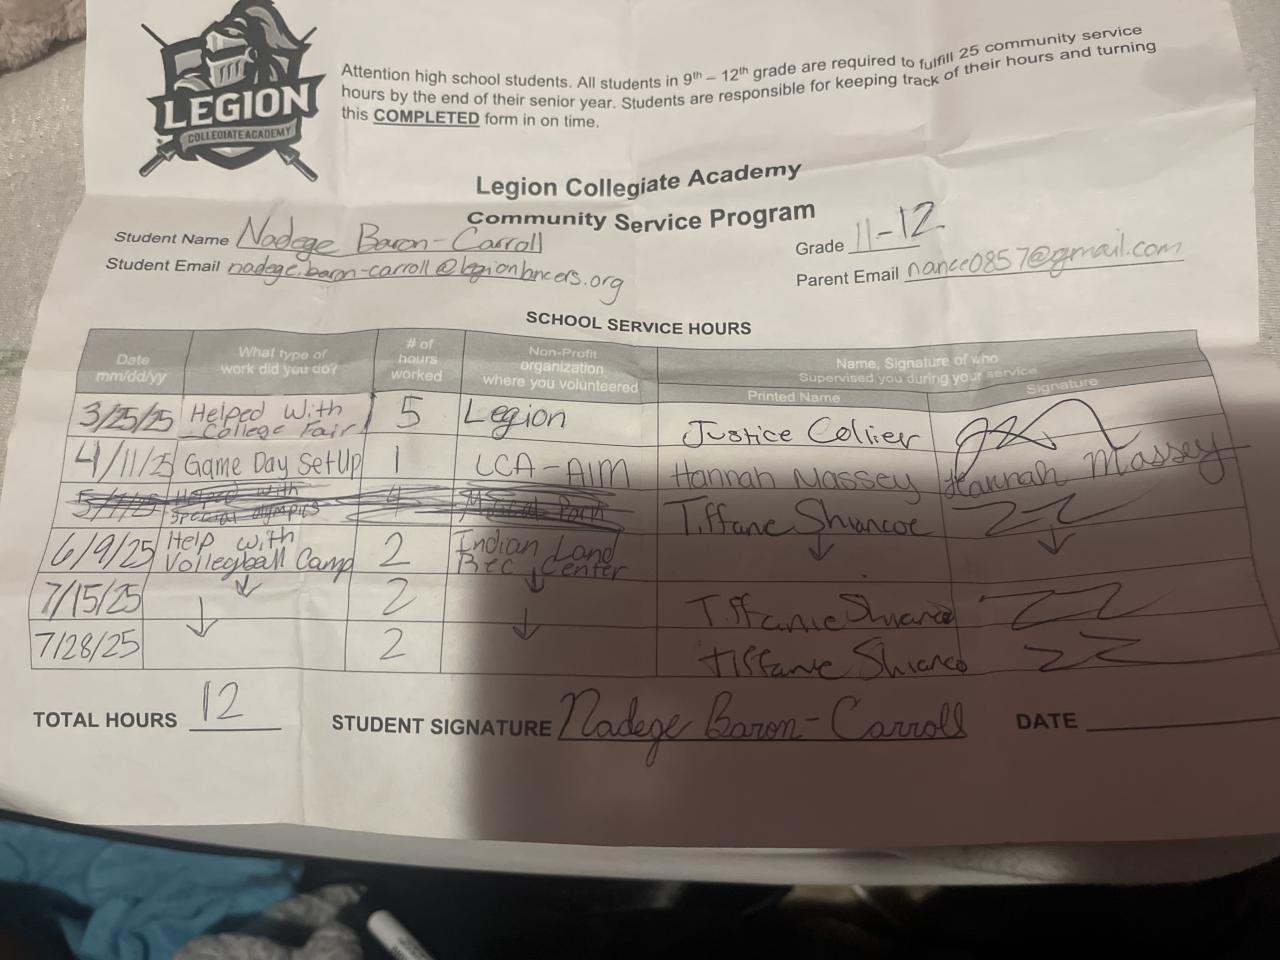 LEGION
COLLEGIATE ACADEMY
Attention high school students. All students in 9th – 12th grade are required to fulfill 25 community service
hours by the end of their senior year. Students are responsible for keeping track of their hours and turning
this COMPLETED form in on time.
Legion Collegiate Academy
Community Service Program
Student Name Nadege Baron-Carroll
Grade 11-12
Student Email nadege.baron-carroll@legionlancers.org
Parent Email nance0857@gmail.com
SCHOOL SERVICE HOURS
Date mm/dd/yy What type of work did you do? # of hours worked Non-Profit organization where you volunteered Name, Signature of who Supervised you during your service
Printed Name Signature
3/25/25 Helped With College Fair 5 Legion Justice Collier
4/11/25 Game Day SetUp 1 LCA-AIM Hannah Massey Hannah Massey
Helped with Special Olympics 4 Tiffane Shiancoe
6/9/25 Help with Volleyball Camp 2 Indian Land Rec Center
7/15/25 ↓ 2 ↓ Tiffanie
7/28/25 ↓ 2 ↓ Tiffanie
TOTAL HOURS 12 STUDENT SIGNATURE Nadege Baron-Carroll DATE